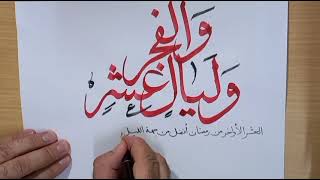 والفجر
وليال عشر
العشر الأواخر من رمضان أفضل من جهة الليل